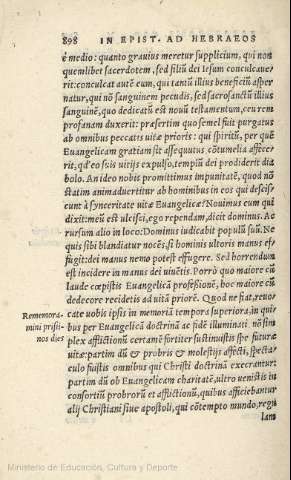 898 IN EPIST. AD HEBRAEOS
è medio: quanto grauius meretur supplicium, qui non
quemlibet sacerdotem, sed filiũ dei Iesum conculcaue-
rit: conculcat autē eum, qui tantũ illius beneficiũ asper
natur, qui nō sanguinem pecudis, sed sacrosanctũ illius
sanguinē, quo dedicatũ est nouũ testamentum, ceu rem
profanam duxerit: præsertim quo semel fuit purgatus
ab omnibus peccatis uitæ prioris: qui spiritũ, per quē
Euangelicam gratiam sit assequutus, cōtumelia affece-
rit, qđ eo suis uitijs expulso, templũ dei prodiderit dia
bolo. An ideo nobis promittimus impunitatē, quod nō
statim animaduertitur ab hominibus in eos qui descisc
cunt à synceritate uitæ Euangelicæ? Nouimus eum qui
dixit: meũ est ulcisci, ego rependam, dicit dominus. Ac
rursum alio in loco: Dominus iudicabit populũ suũ. Ne
quis sibi blandiatur nocēs, si hominis ultoris manus ef-
fugit: dei manus nemo potest effugere. Sed horrendum
est incidere in manus dei uiuētis. Porrò quo maiore cũ
laude cœpistis Euangelicā professionē, hoc maiore cũ
dedecore recidetis ad uitā priorē. Quod ne fiat, reuo-
Rememora-
mini pristi-
nos dies
cate uobis ipsis in memoriā tempora superiora, in qui
bus per Euangelicā doctrinā ac fidē illuminati, nō sim
plex afflictionũ certamē fortiter sustinuistis spe futuræ
uitæ: partim dũ & probris & molestijs affecti, specta-
culo fuistis omnibus qui Christi doctrinā execrantur:
partim dũ ob Euangelicam charitatē, ultro uenistis in
consortiũ probrorũ et afflictionũ, quibus afficiebantur
alij Christiani siue apostoli, qui cōtempto mundo, regu
lam
Ministerio de Educación, Cultura y Deporte